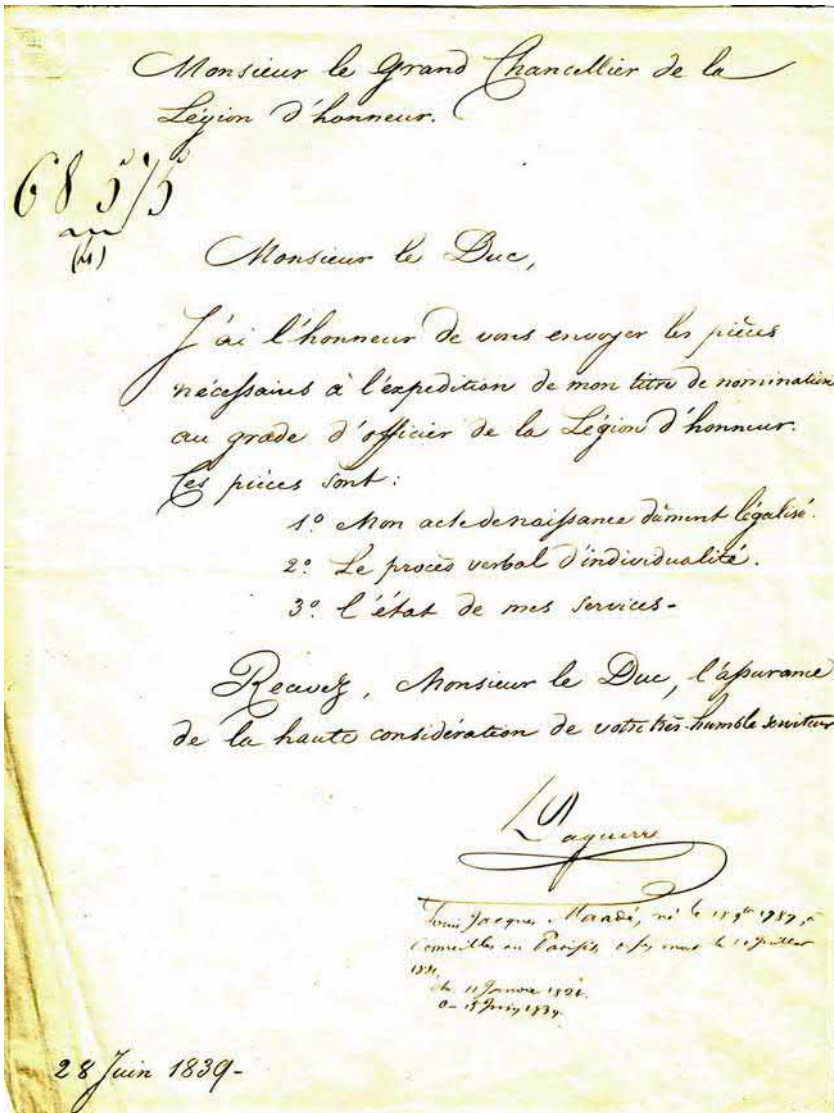 Monsieur le Grand Chancellier de la
Légion d'honneur.
68 515
(4)
Monsieur le Duc,
J'ai l'honneur de vous envoyer les pièces
nécessaires à l'expedition de mon titre de nomination
au grade d'officier de la Légion d'honneur.
Ces pièces sont :
1º Mon acte de naissance dûment légalisé.
2º Le procès verbal d'individualité.
3º l'état de mes services -
Recevez, Monsieur le Duc, l'assurance
de la haute considération de votre très humble serviteur
Daguerre
Louis Jacques Mandé, né le 18 9bre 1787, à
Cormeilles en Parisis, mort le 10 juillet
1851,
11 Janvier 1825.
O - 15 Juin 1839.
28 Juin 1839 -